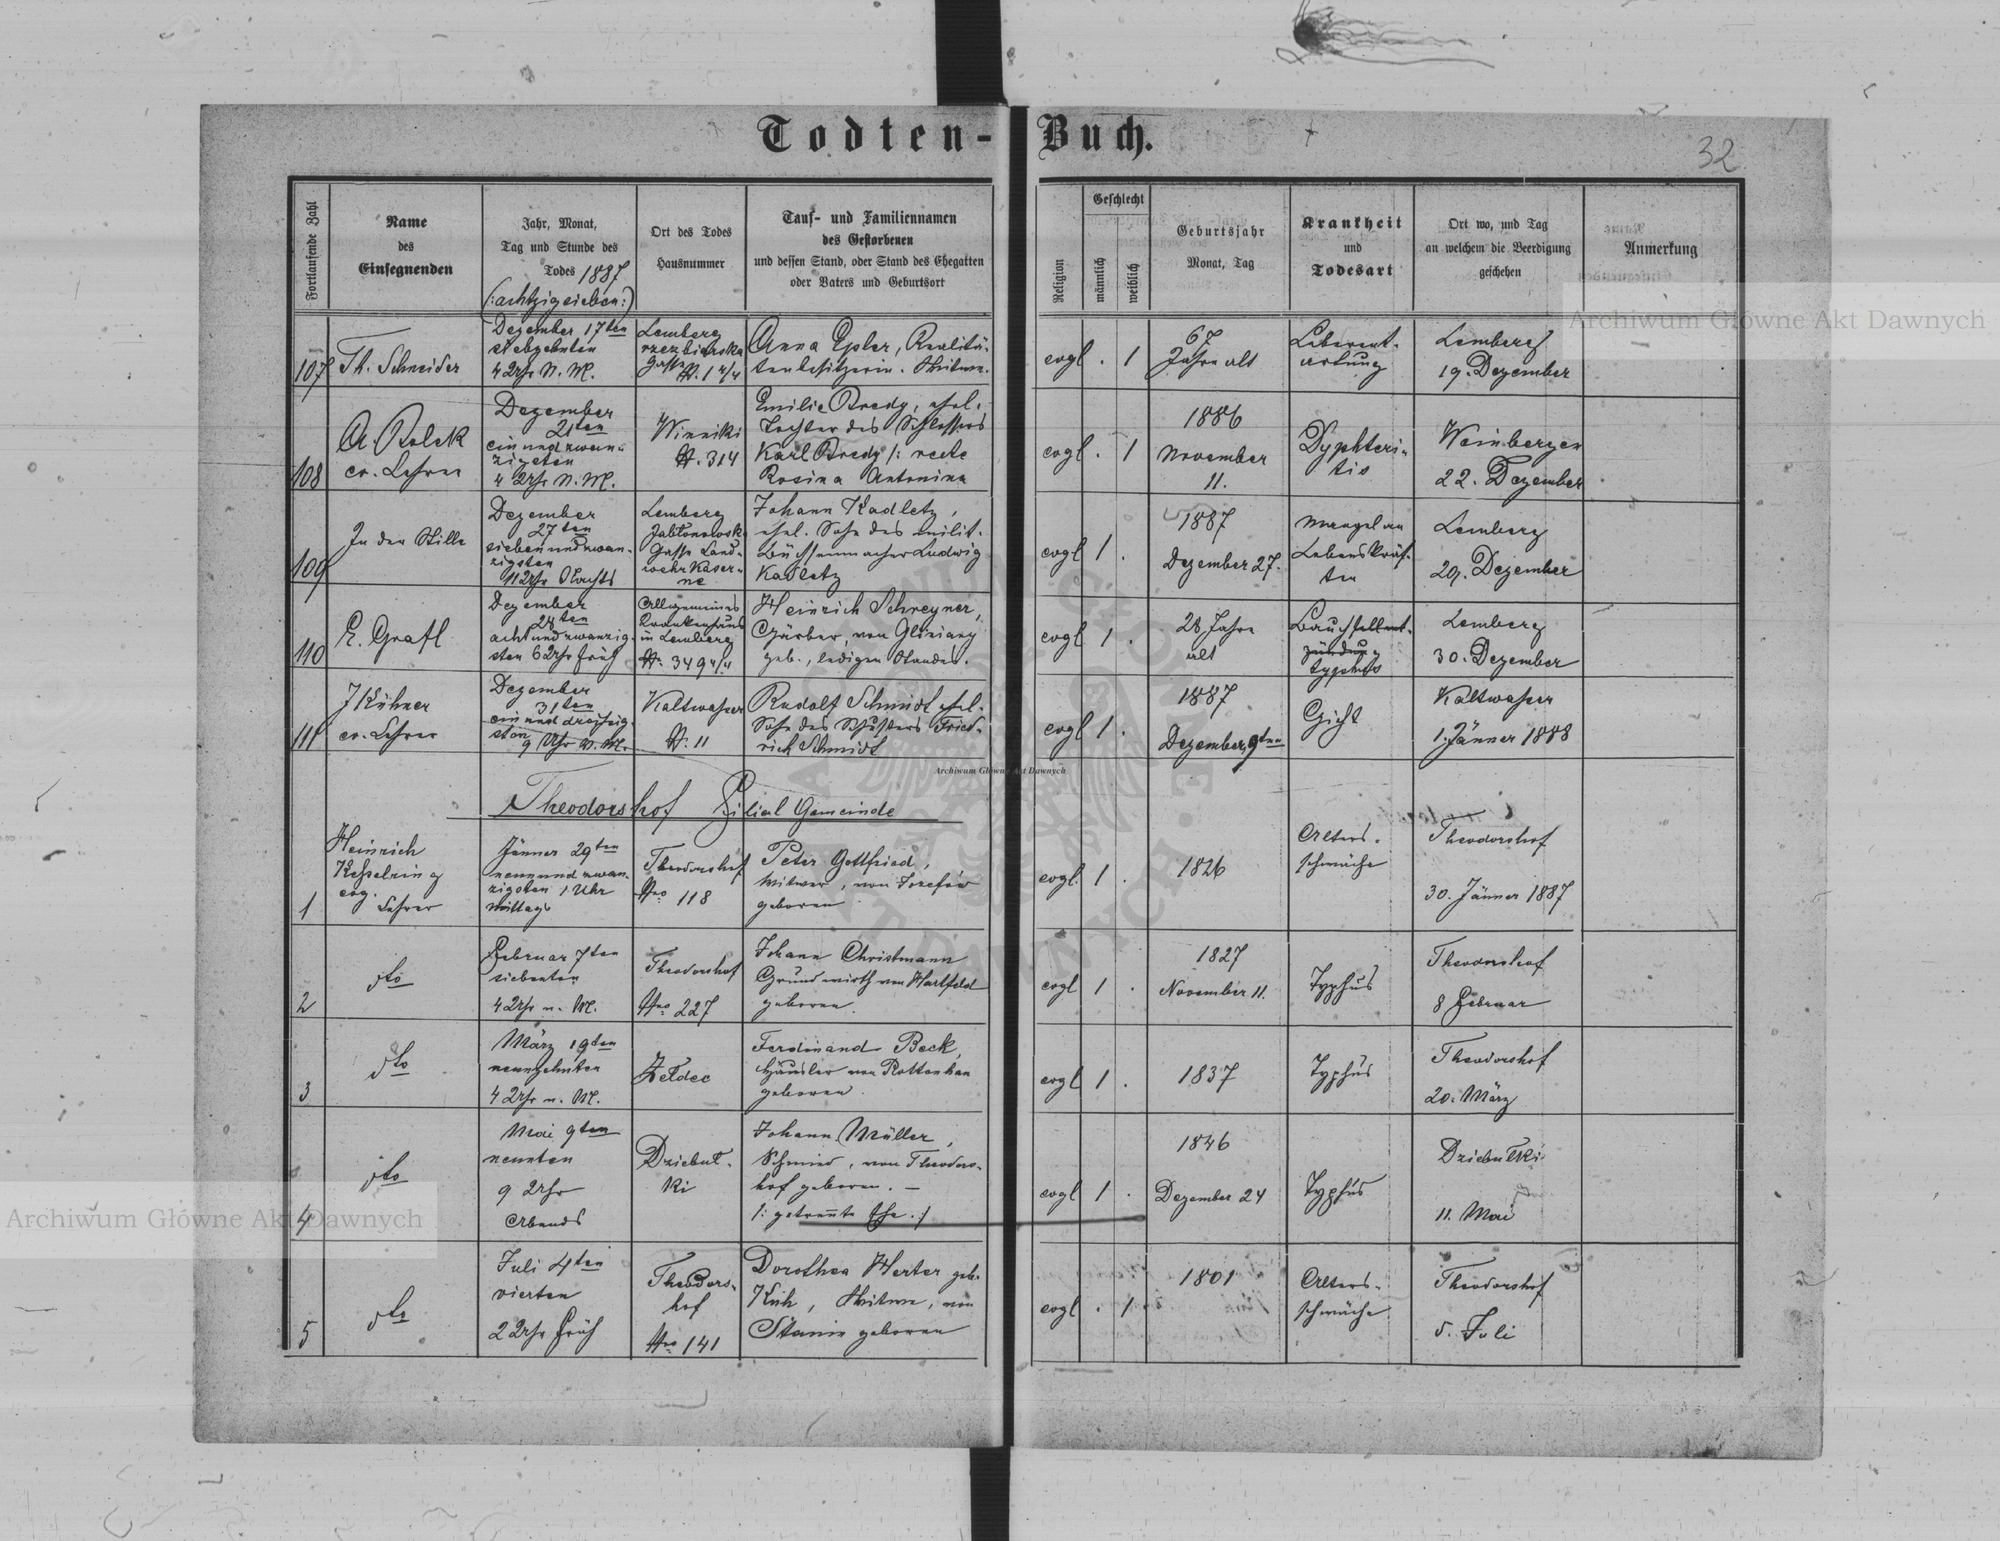 Todten-Buch.
32
Fortlaufende Zahl
Name
des
Einsegnenden
Jahr, Monat,
Tag und Stunde des
Todes 1887
(:achtzigsieben:)
Ort des Todes
Hausnummer
Tauf- und Familiennamen
des Gestorbenen
und dessen Stand, oder Stand des Ehegatten
oder Vaters und Geburtsort
Religion
Geschlecht
männlich
weiblich
Geburtsjahr
Monat, Tag
Krankheit
und
Todesart
Ort wo, und Tag
an welchem die Beerdigung
geschehen
Anmerkung
107
Th. Schneider
Dezember 17ten
siebzehnten
4 Uhr N. M.
Lemberg
rzezbiarska
Gasse
N. 1 2/4
Anna Epler, Realitä-
tenbesitzerin. Witwe.
evgl . 1
67
Jahre alt
Leberent-
artung
Lemberg
19. Dezember
108
A. Rolek
ev. Lehrer
Dezember
21ten
einundzwan-
zigsten
4 Uhr N. M.
Winniki
N. 314
Emilie Bredy, ehel.
Tochter des Schlossers
Karl Bredy /: recte
Rosina Antonina
evgl . 1
1886
November
11.
Dyphteri-
tis
Weinbergen
22. Dezember
109
In der Stille
Dezember
27ten
siebenundzwan-
zigsten
11 Uhr Nachts
Lemberg
Jabłonowsk.
Gasse Land-
wehrkaser-
ne
Johann Kadletz,
ehel. Sohn des milit.
Büchsenmacher Ludwig
Kadletz
evgl 1 .
1887
Dezember 27.
Mangel an
Lebenskräf-
ten
Lemberg
29. Dezember
110
E. Grafl
Dezember
28ten
achtundzwanzig-
sten 6 Uhr früh
Allgemeines
Krankenhaus
in Lemberg
N. 349 4/4
Heinrich Schreyner,
Gärber, von Gliniany
geb., ledigen Standes.
evgl 1 .
28 Jahre
alt
Bauchfellent-
zündung
typhus
Lemberg
30. Dezember
111
J Kühner
ev. Lehrer
Dezember
31ten
einunddreißig-
sten
9 Uhr V. M.
Kaltwasser
N. 11
Rudolf Schmidt ehel.
Sohn des Schusters Fried-
rich Schmidt
evgl 1 .
1887
Dezember, 9ten
Gicht
Kaltwasser
1. Jänner 1888
Theodorshof Filial Gemeinde
1
Heinrich
Kesselring
evg.
Lehrer
Jänner 29ten
neunundzwan-
zigsten 1 Uhr
Mittags
Theodorshof
Nro 118
Peter Gottfried,
Witwer, von Josefów
geboren
evgl. 1 .
1826
Alters-
schwäche
Theodorshof
30. Jänner 1887
2
dto
Februar 7ten
siebenten
4 Uhr n. M.
Theodorshof
Nro 227
Johann Christmann
Grundwirth von Hartfeld
geboren.
evgl 1 .
1827
November 11.
Typhus
Theodorshof
8 Februar
3
dto
März 19ten
neunzehnten
4 Uhr n. M.
Żeldec
Ferdinand Beck,
Häusler von Rottenhan
geboren.
evgl 1 .
1837
Typhus
Theodorshof
20. März
4
dto
Mai 9ten
neunten
9 Uhr
Abends
Dziebuł-
ki
Johann Müller,
Schmied, von Theodors-
hof geboren. —
/: getrennte Ehe. :/
evgl 1 .
1846
Dezember 24
Typhus
Dziebułki
11. Mai
5
dto
Juli 4ten
vierten
2 Uhr früh
Theodors-
hof
Nro 141
Dorothea Herter geb.
Küh, Witwe, von
Stanin geboren
evgl . 1
1801
Alters-
schwäche
Theodorshof
5. Juli
Archiwum Główne Akt Dawnych
Archiwum Główne Akt Dawnych
Archiwum Główne Akt Dawnych